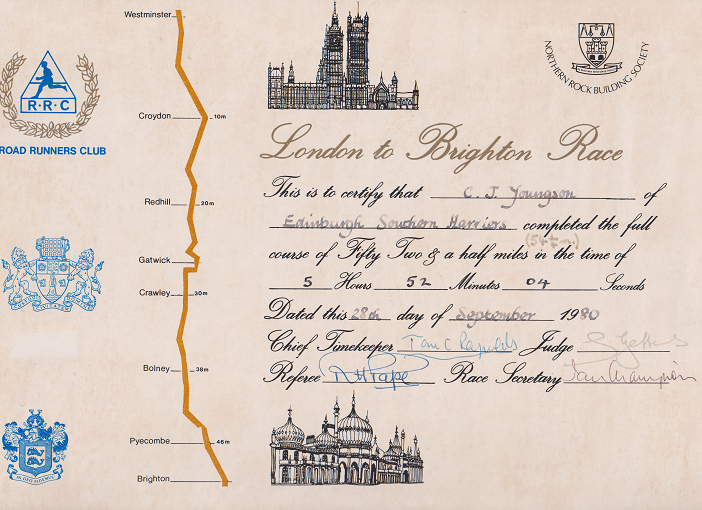 R·R·C
ROAD RUNNERS CLUB
IN DEO FIDEMUS
Westminster
Croydon 10m
Redhill 20m
Gatwick
Crawley 30m
Bolney 38m
Pyecombe 46m
Brighton
NORTHERN ROCK BUILDING SOCIETY
London to Brighton Race
This is to certify that C. J. Youngson of
Edinburgh Southern Harriers completed the full
course of Fifty Two & a half miles in the time of
5 Hours 52 Minutes 04 Seconds
Dated this 28th day of September 1980
Chief Timekeeper Judge
Referee R H Pape Race Secretary Ian Champion